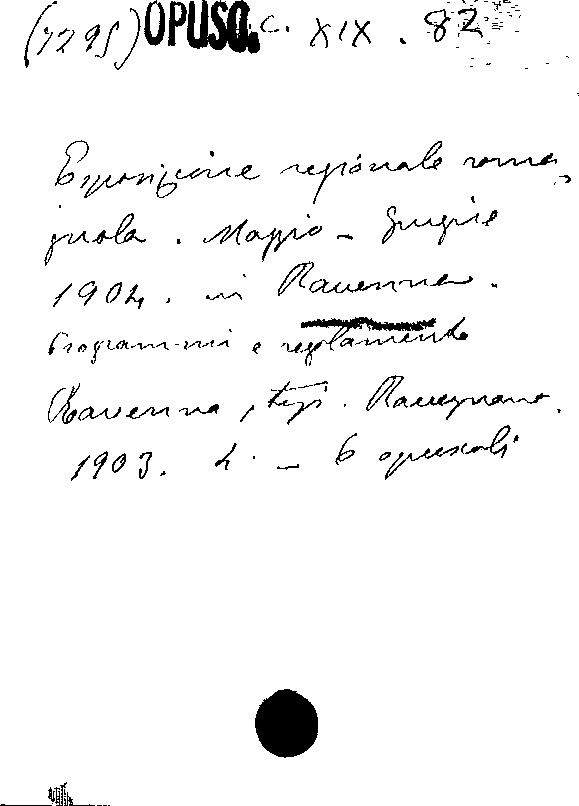 (7295) OPUSC. C. XIX. 82
Esposizione regionale roma-
gnola. Maggio - Giugno
1904. in Ravenna.
Programmi e regolamento
Ravenna, tip. Ravegnana.
1903. 4. - 6 opuscoli